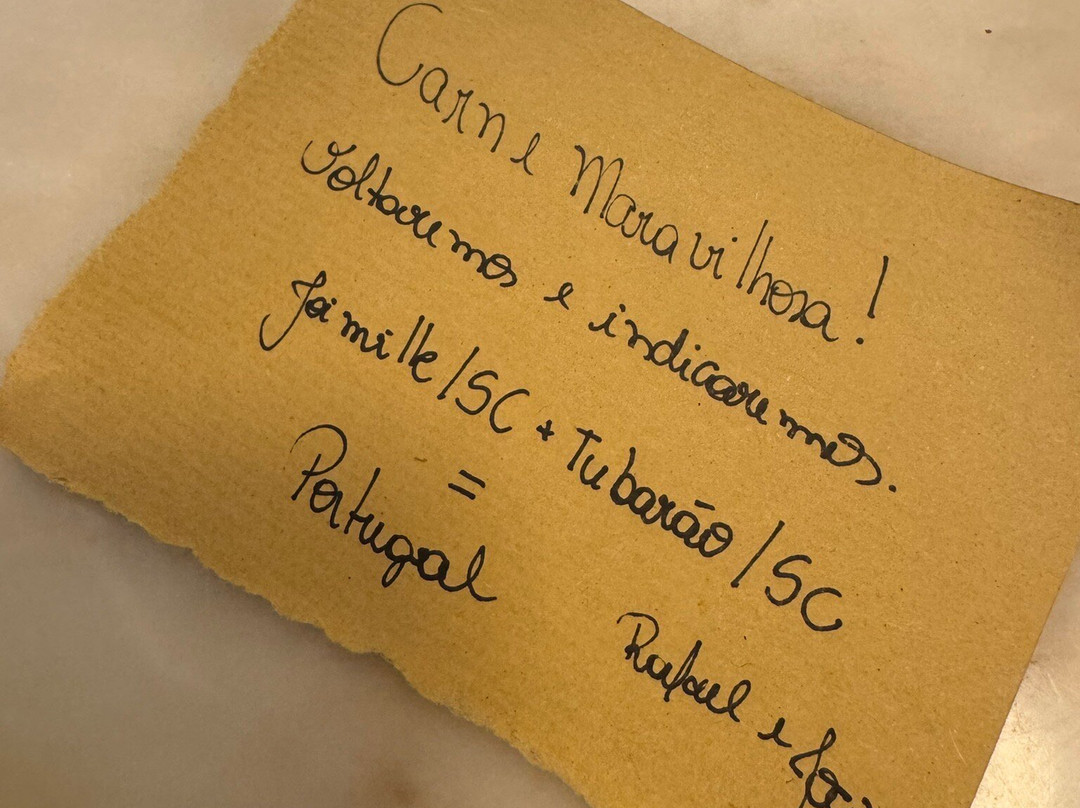 Carne Maravilhosa!
Voltaremos e indicaremos.
Joinville/SC + Tubarão/SC
=
Portugal
Rafael e